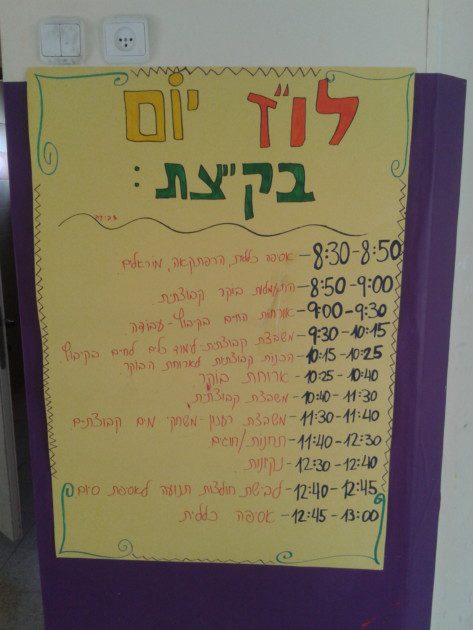 לו"ז יום
בק"צת:
8:30-8:50 - אסיפה כללית, הרפתקאה, מוראלים
8:50-9:00 - התעמלות בוקר קבוצתית
9:00-9:30 - ארוחת החיים בקיבוץ-עבודה
9:30-10:15 - משבצת קבוצתית-לימוד כלים לחיים בקיבוץ
10:15-10:25 - הכנות קבוצתית לארוחת הבוקר
10:25-10:40 - ארוחת בוקר
10:40-11:30 - משבצת קבוצתית
11:30-11:40 - משבצת רענון-משחקי מים קבוצתים
11:40-12:30 - תחנות/חוגים
12:30-12:40 - נקיונות
12:40-12:45 - לבישת חולצות תנועה לאספת סיום
12:45-13:00 - אסיפה כללית